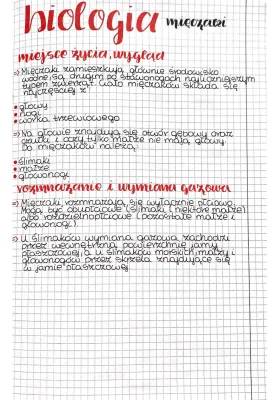 biologia mięczaki
miejsce życia, wygląd
=> Mięczaki zamieszkują głównie środowisko
wodne, są drugim po stawonogach najliczniejszym
typem zwierząt. Ciało mięczaków składa się
najczęściej z
• głowy
• nogi
• worka trzewiowego
=> Na głowie znajduje się otwór gębowy oraz
czułki i oczy, tylko małże nie mają głowy.
Do mięczaków należą:
• ślimaki
• małże
• głowonogi
rozmnażanie i wymiana gazowa
=> Mięczaki rozmnażają się wyłącznie płciowo.
Mogą być obupłciowe (ślimaki i niektóre małże)
albo rozdzielnopłciowe (pozostałe małże i
głowonogi).
=> U ślimaków wymiana gazowa zachodzi
przez wewnętrzną powierzchnię jamy
płaszczowej, a u ślimaków morskich, małży i
głowonogów przez skrzela znajdujące się
w jamie płaszczowej